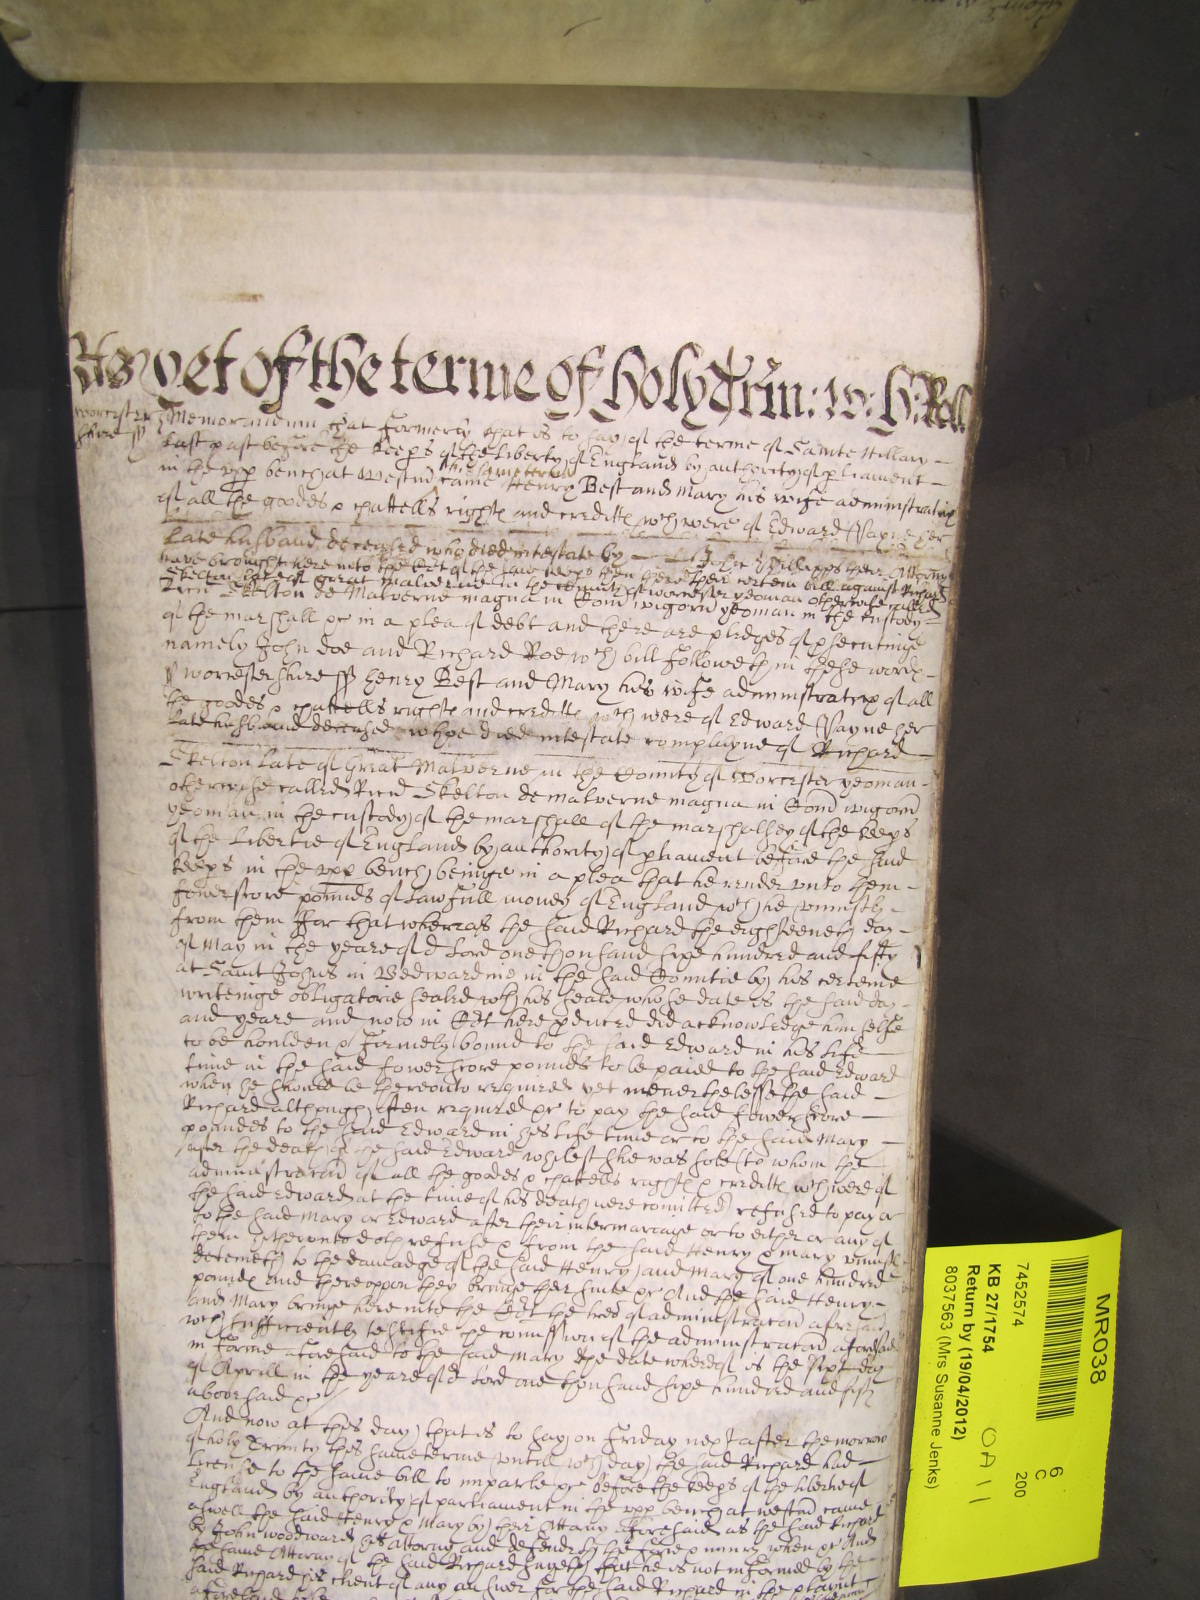 As yet of the terme of holy Trin: 10: H: Roll
worcester
shire ss
Memorandum that formerly that is to say of the terme of Sainte Hillary
last past before the keeps of the Liberty of England by authority of pliament
in the vpp bench at Westm came Henry Best and Mary his wife administratrix
of all the goodes & chattells rights and creditts wch were of Edward Payne her
late husband deceased who died intestate by Phillipps their Attorny
have brought here into the Cort of the said keeps then there their certein bill against Richard
Skelton late of great Malverne in the County of worcester yeoman otherwise called
Ricu Skelton de Malverne magna in Com wigorn yeoman in the custody
of the marshall &c in a plea of debt and there are pledges of psecutinge
namely John Doe and Richard Roe wch bill followeth in these words
ss worcestershire ss Henry Best and Mary his wife administratrix of all
the goodes & chattells rights and creditts wch were of Edward Payne her
late husband deceased whoe died intestate complayne of Richard
Skelton late of Great Malverne in the County of worcester yeoman
otherwise called Ricu Skelton de malverne magna in Com wigorn
yeoman in the custody of the marshall of the marshalsey of the keeps
of the Libertie of England by authority of pliament before the said
keeps in the vpp bench beinge in a plea that he render vnto them
fower score pounds of lawfull money of England wch he vniustly
from them ffor that whereas the said Richard the eighteenth day
of May in the yeare of or Lord one thousand sixe hundred and fifty
at Saint Johns in Bedwardine in the said Countie by his certeine
writeinge obligatorie sealed wth his seale whose date is the said day
and yeare and now in Cort here pduced did acknowledge himselfe
to be houlden & firmely bound to the said Edward in his life
time in the said fower score pounds to be paied to the said Edward
when he should be thereonto required yet neverthelesse the said
Richard although often required &c to pay the said fower score
poundes to the said Edward in his life time or to the said Mary
after the death of the said Edward whilest she was sole (to whom the
administracon of all the goodes & chattells rights & creditts wch were of
the said Edward at the time of his death were comitted) refused to pay or
to the said Mary or Edward after their intermariage or to either or any of
them hitherunto doth refuse & from the said Henry & Mary vniustly
deteineth to the damadge of the said Henry and Mary of one hundred
pounds and thereoppon they bringe their suite &c And the said Henry
and Mary bringe here into the Cort the tres of administracon aforesaid
wch sufficiently testifie the comission of the administracon aforesaid
in forme aforesaid to the said Mary the date whereof is the day
of Aprill in the yeare of or Lord one thousand sixe hundred and fifty
abovesaid &c
And now at this day that is to say on Friday next after the morrow
of holy Trinity this same terme vntill wch day the said Richard had
licence to the same bill to imparle &c before the keeps of the liberty of
England by authority of parliament in the vpp bench at westm came
aswell the said Henry & Mary by their Attorny aforesaid as the said Richard
by John woodward his Attorny and defendeth the force & iniury when &c And
the same Attorny of the said Richard sayeth that he is not informed by the
said Richard his client of any answer for the said Richard in the plaint
aforesaid